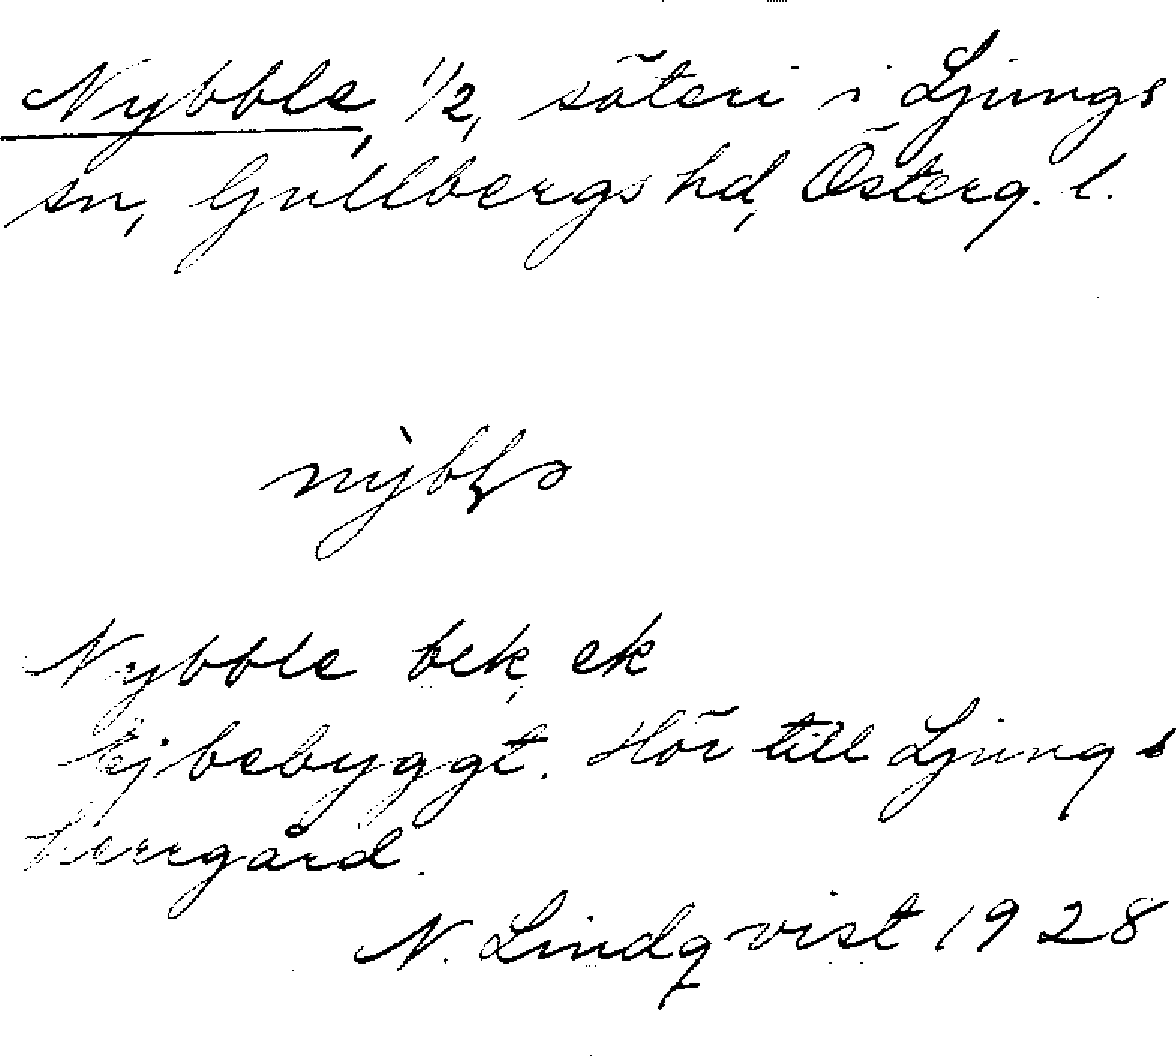 Nybble, 1/2, säteri i Ljungs
sn, Gullbergs hd, Österg. l.
Nybble bek, ek
Ej bebyggt. Hör till Ljungs
herrgård.
N. Lindqvist 1928